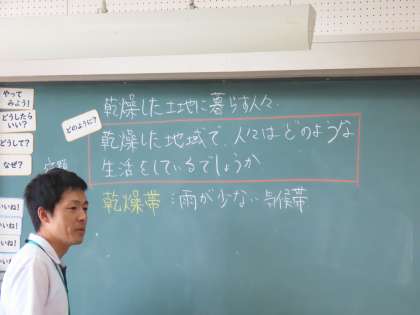 やって
みよう！
どうしたら
いい？
どうして？
なぜ？
いいね！
いいね！
いいね！
どのように？
乾燥した土地に暮らす人々
乾燥した地域で、人々はどのような
生活をしているでしょうか
乾燥帯：雨が少ない気候帯